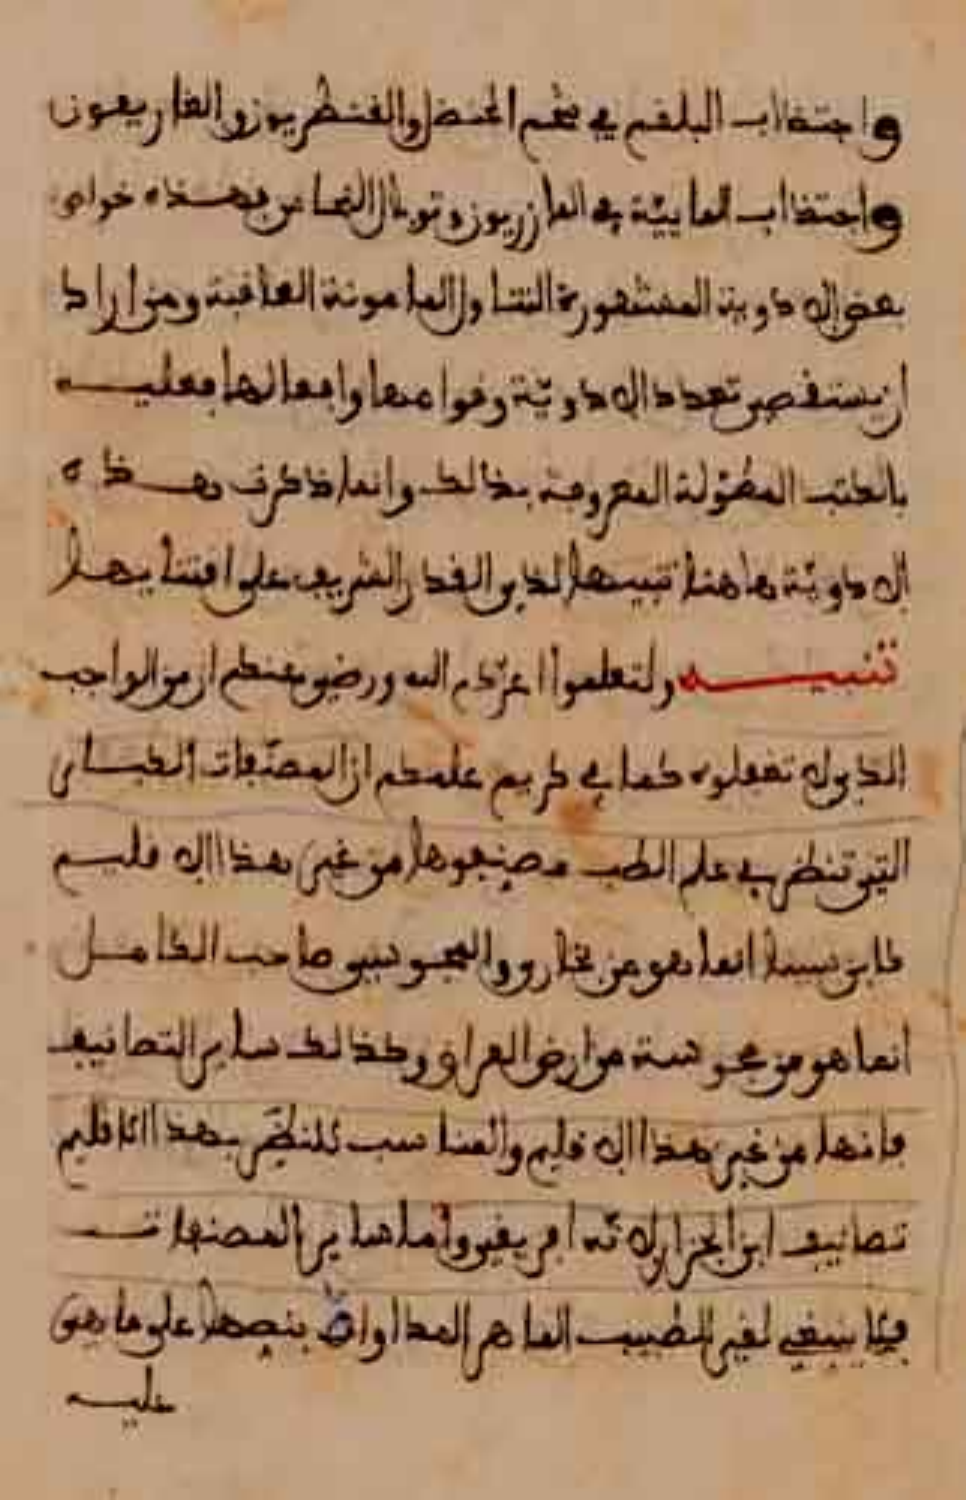 واجتذاب البلغم في شحم الحنضل والقنطريون والغاريقون
واجتذاب المايية في المازريون وتوبال النحاس فهذه خواص
بعض الادوية المشهورة التناول المامونة العاقبة ومن اراد
ان يستقصي تعدد الادوية وقواعدها وافعالها فعليه
بالكتب المطولة المعروفة بذالك وانما ذكرت هذه
الادوية هاهنا تنبيها لذي القدر الشريف على اقتنايها
تنبيه ولتعلموا اعزكم الله ورضي عنكم ان من الواجب
الذي لا تغفلوه كما في كريم علمكم ان المصنفات الكبار
التي تنظر في علم الطب مصنفوها من غير هذا الاقليم
كابن سينا انما هو من بخارى والمجوسي صاحب الكامل
انما هو من مجوسة من ارض العراق وكذالك ساير التصانيف
فانها من غير هذا الاقليم والمناسب للنظر بهذا الاقليم
تصانيف ابن الجزار لانه افريقي واما ساير المصنفات
فلا ينبغي لغير الطبيب الماهر المداواة بنصها على ما هي
عليه